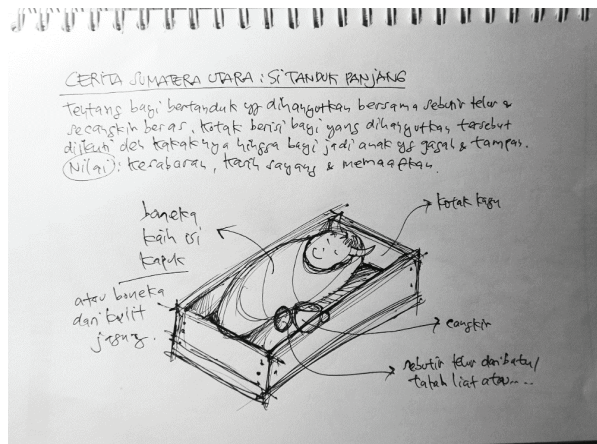 CERITA SUMATERA UTARA : SI TANDUK PANJANG
Tentang bayi bertanduk yg dihanyutkan bersama sebutir telur &
secangkir beras. Kotak berisi bayi yang dihanyutkan tersebut
diikuti oleh kakaknya hingga bayi jadi anak yg gagah & tampan.
Nilai : Kesabaran, kasih sayang & memaafkan.
boneka
kain isi
kapuk
atau boneka
dari kulit
jagung.
kotak kayu
cangkir
sebutir telur dari batu/
tanah liat atau....